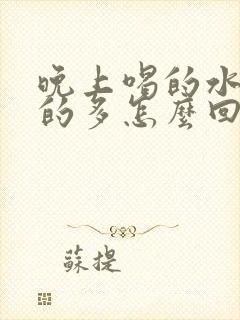 晚上喝的水
的多怎麼回
蘇提